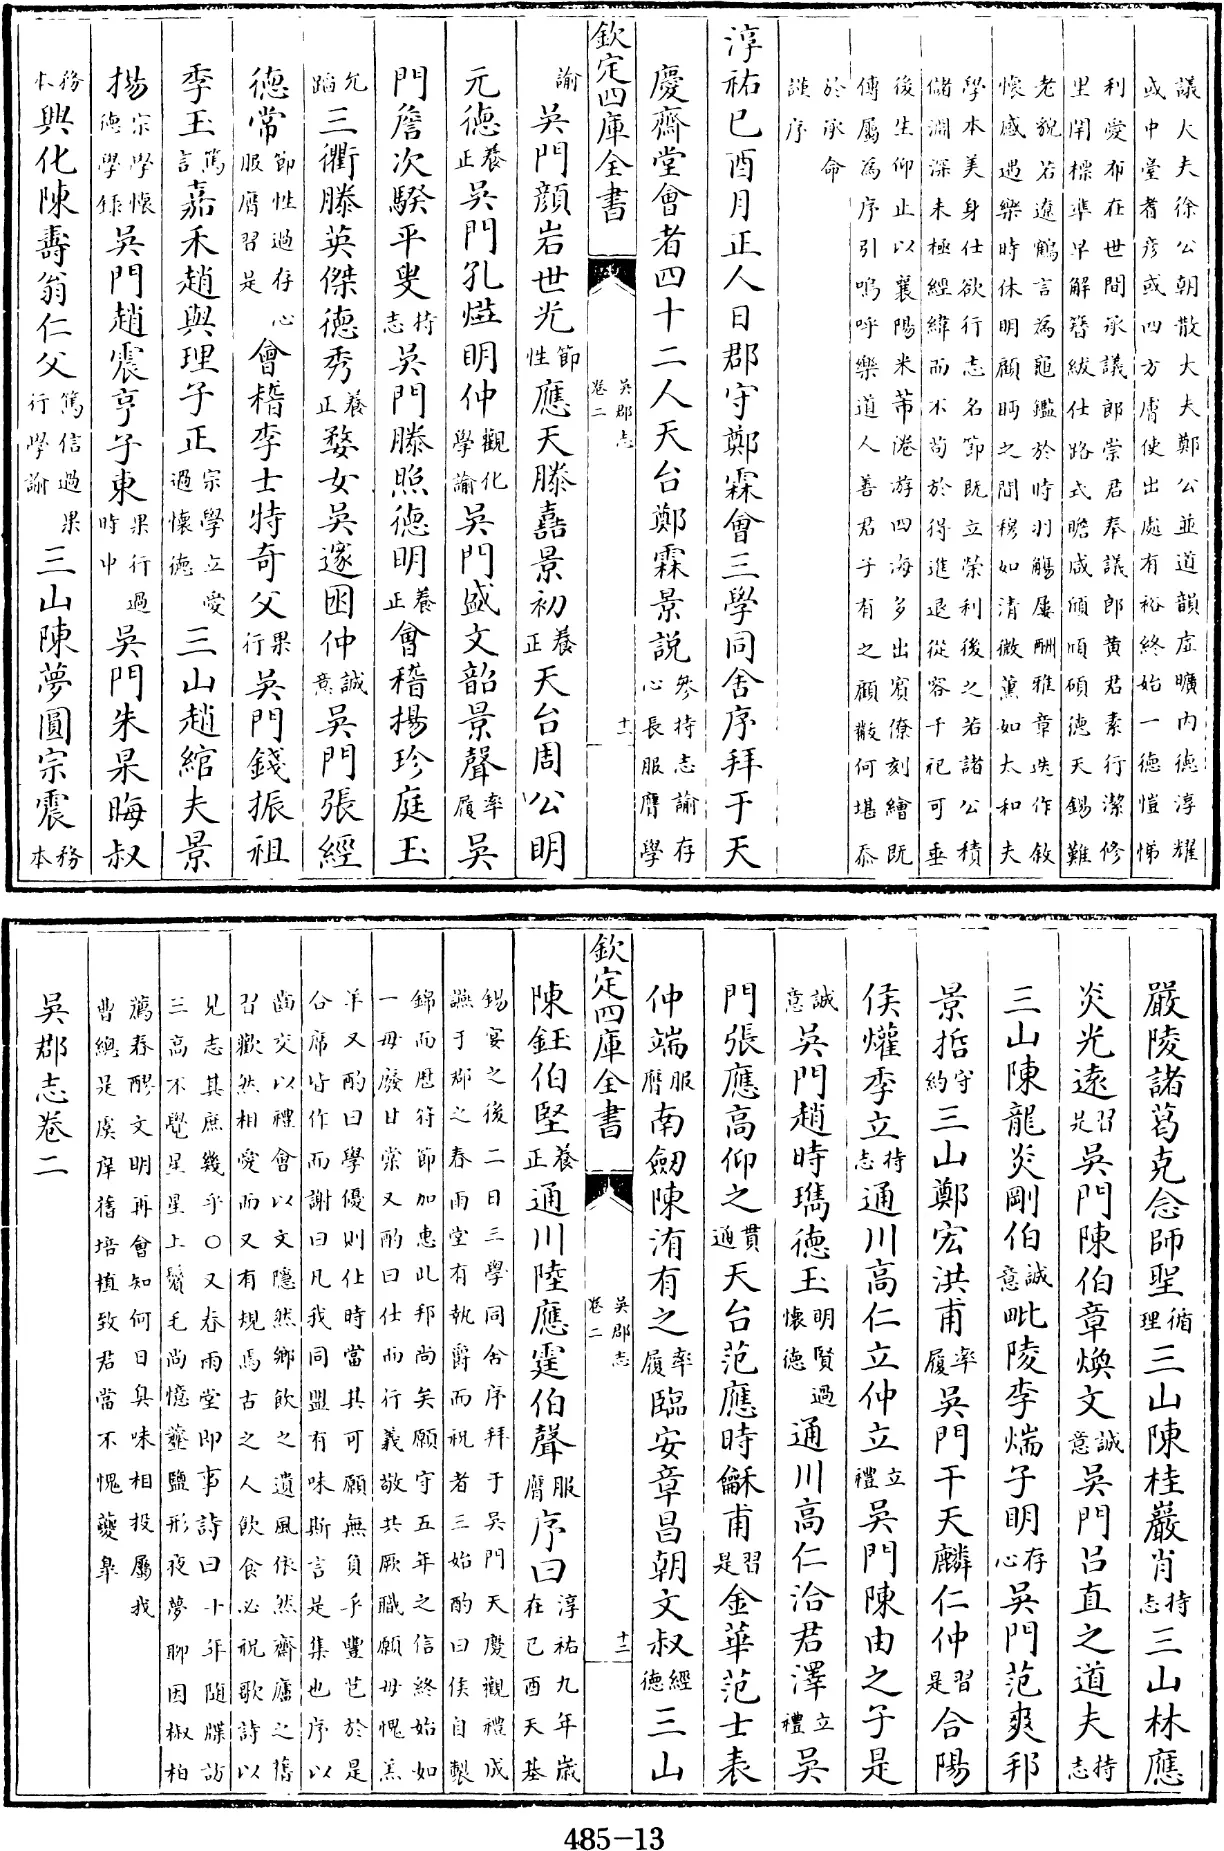 議大夫徐公朝散大夫鄭公並道韻虛曠内德淳耀
或中臺耆彥或四方膚使出處有裕終始一德愷悌
利愛布在世間承議郎崇君奉議郎黄君素行潔修
里閈標準早解簪紱仕路式瞻咸頎頎碩德天錫難
老貌若遼鶴言為龜鑑於時羽觴屢酬雅章迭作敘
懷感遇樂時休明顧眄之間穆如清微薰如太和夫
學本美身仕欲行志名節既立榮利後之若諸公積
儲淵深未極經緯而不苟於得進退從容千祀可垂
後生仰止以襄陽米芾港游四海多出賓僚刻繪既
傳屬為序引嗚呼樂道人善君子有之顧何堪忝
於承命
謹序
淳祐已酉月正人日郡守鄭霖會三學同舍序拜于天
慶齋堂會者四十二人天台鄭霖景説參持志諭存心長服膺學
欽定四庫全書 吳郡志卷二 十一
諭吳門顔岩世光節性應天滕嚞景初養正天台周公明
元德養正吳門孔烓明仲觀化學諭吳門盛文韶景聲率履吳
門詹次騤平叟持志吳門滕㷖德明養正會稽揚珍庭玉
允蹈三衢滕英傑德秀養正婺女吳邃困仲誠意吳門張經
德常節性過存心服膺習是會稽李士特奇父果行吳門錢振祖
季玉篤言嘉禾趙與理子正宗學立愛過懷德三山趙綰夫景
揚宗學懷德學錄吳門趙震亨子東果行過時中吳門朱杲晦叔
務本興化陳壽翁仁父篤信過果行學諭三山陳夢圓宗震務本
嚴陵諸葛克念師聖循理三山陳桂巖肖持志三山林應
炎光遠習是吳門陳伯章煥文誠意吳門吕直之道夫持志
三山陳龍炎剛伯誠意毗陵李煓子明存心吳門范爽邦
景哲守約三山鄭宏洪甫率履吳門干天麟仁仲習是合陽
侯爟季立持志通川高仁立仲立立禮吳門陳由之子是
誠意吳門趙時㻽德玉明賢過懷德通川高仁洽君澤立禮吳
門張應高仰之貫通天台范應時龢甫習是金華范士表
仲端服膺南劒陳洧有之率履臨安章昌朝文叔經德三山
欽定四庫全書 吳郡志卷二 十二
陳鈺伯堅養正通川陸應霆伯聲服膺序曰淳祐九年歲在已酉天基
錫宴之後二日三學同舍序拜于吳門天慶觀禮成
讌于郡之春雨堂有執爵而祝者三始酌曰侯自製
錦而厯符節加惠此邦尚矣願守五年之信終始如
一毋廢甘棠又酌曰仕而行義敬共厥職願毋愧羔
羊又酌曰學優則仕時當其可願無負乎豐芑於是
合席皆作而謝曰凡我同盟有味斯言是集也序以
齒交以禮會以文隱然鄉飲之遺風依然齋廬之舊
習歡然相愛而又有規焉古之人飲食必祝歌詩以
見志其庶幾乎○又春雨堂即事詩曰十年隨牒訪
三高不覺星星上鬢毛尚憶虀鹽形夜夢聊因椒柏
薦春醪文明再會知何日臭味相投屬我
曹總是虞庠舊培植致君當不愧夔臯
吳郡志卷二
485-13